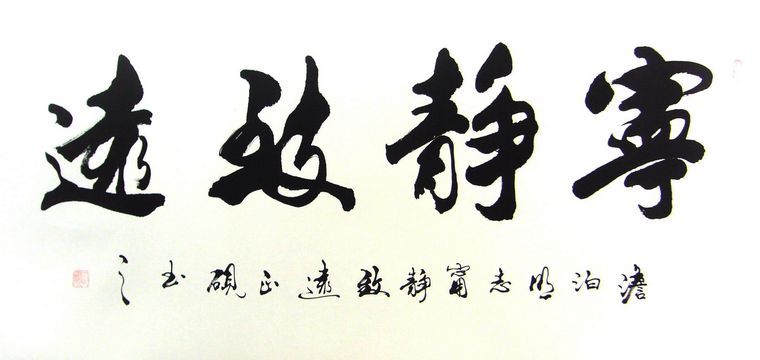 寧靜致遠
澹泊明志甯靜致遠正硯书之